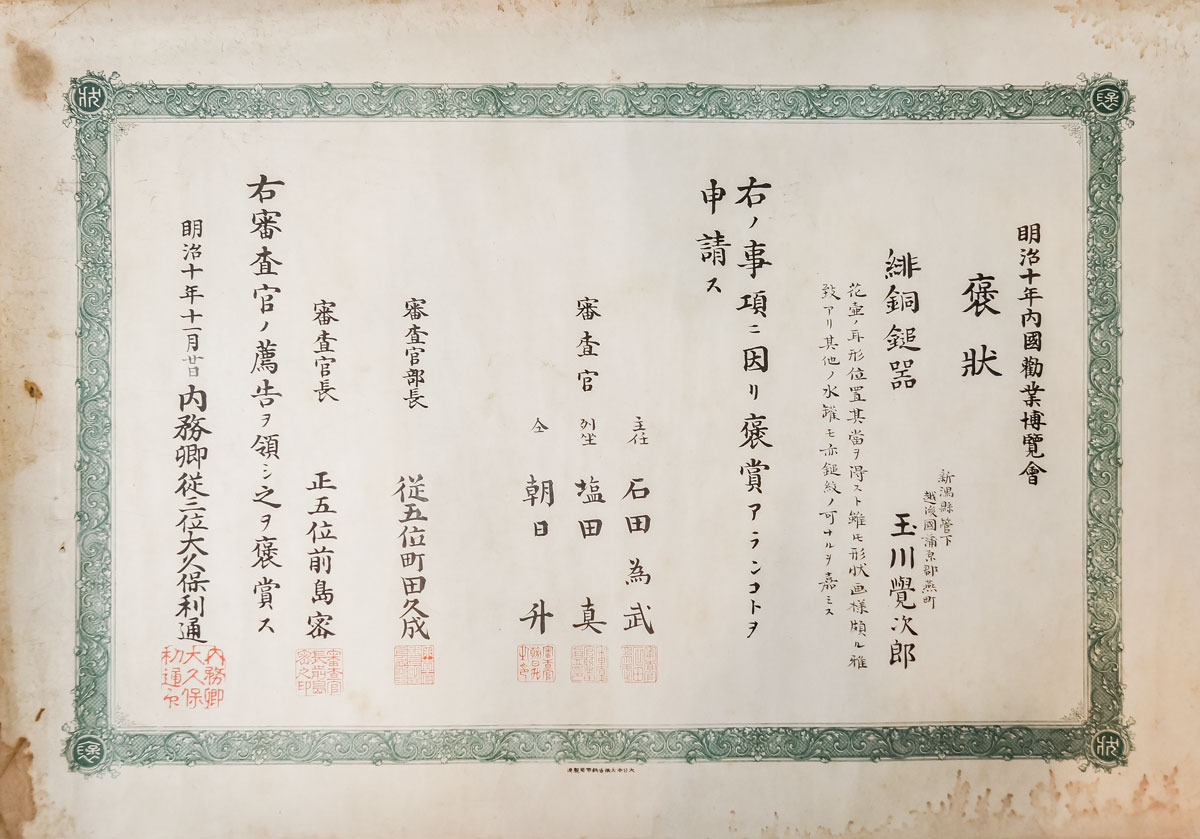 明治十年内國勸業博覽會
褒狀
新潟縣管下
越後國蒲原郡燕町
緋銅鎚器 玉川覺次郎
花壷ノ耳形位置其當ヲ得スト雖モ形状画様頗ル雅
致アリ其他ノ水罐モ亦鎚紋ノ可ナルヲ嘉ミス
右ノ事項ニ因リ褒賞アランコトヲ
申請ス
主任 石田為武
審査官 列坐 塩田真
仝 朝日升
審査官部長 従五位町田久成
審査官長 正五位前島密
右審査官ノ薦告ヲ領シ之ヲ褒賞ス
明治十年十一月廿日 内務卿従三位大久保利通
審査官
長前島
密之印
内務卿
大久保
利通印
褒
狀
褒
狀